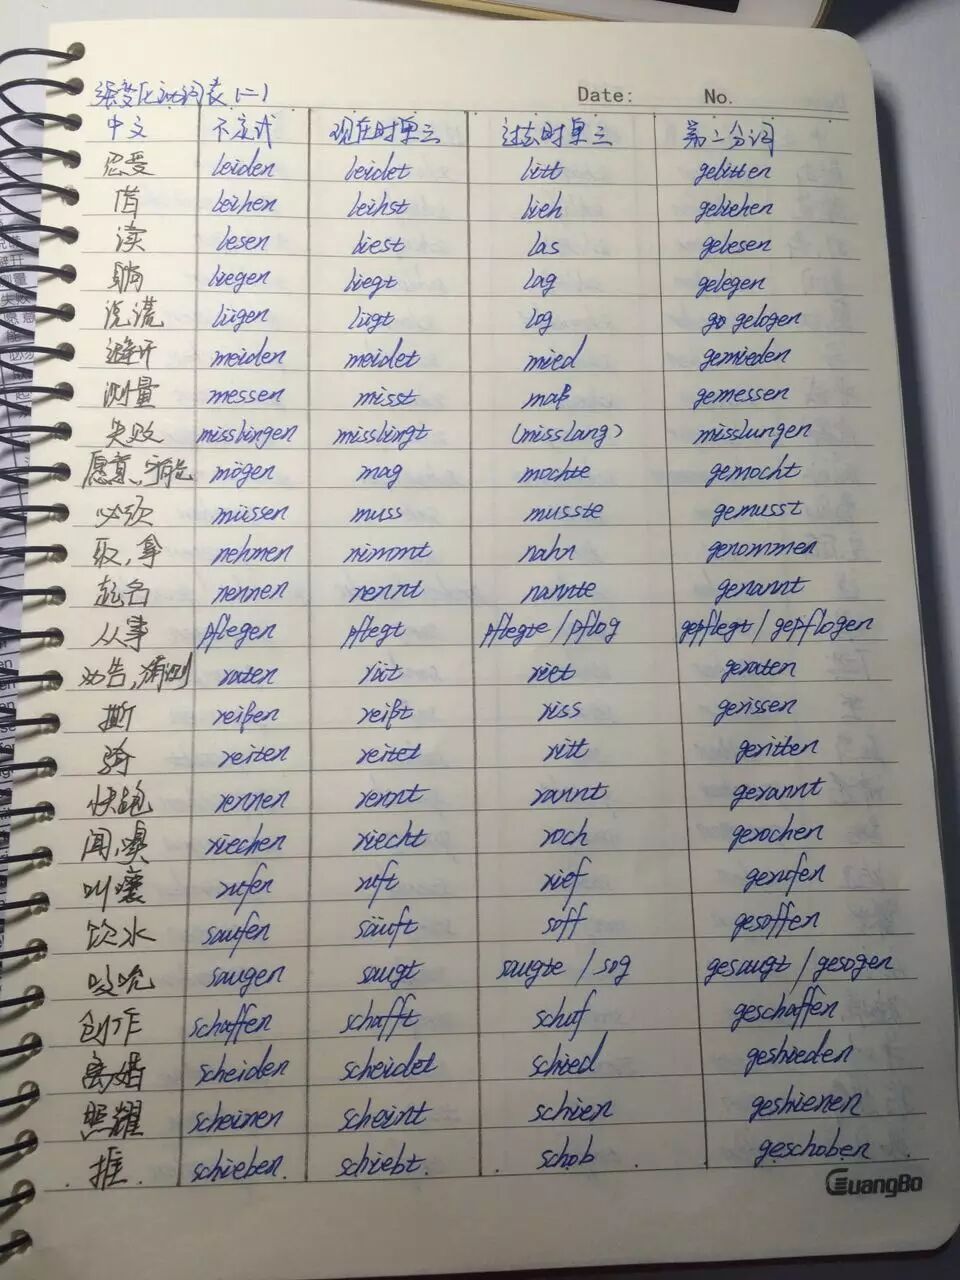 强变化动词表(二)
Date: No.
中文 不定式 现在时单三 过去时单三 第二分词
忍受 leiden leidet litt gelitten
借 leihen leihst lieh geliehen
读 lesen liest las gelesen
躺 liegen liegt lag gelegen
说谎 lügen lügt log gelogen
避开 meiden meidet mied gemieden
测量 messen misst maß gemessen
失败 misslingen misslingt (misslang) misslungen
愿意、可能 mögen mag mochte gemocht
必须 müssen muss musste gemusst
取,拿 nehmen nimmt nahn genommen
起名 nennen nennt nannte genannt
从事 pflegen pflegt pflegte/pflog gepflegt/gepflogen
劝告,猜测 raten rät riet geraten
撕 reißen reißt riss gerissen
骑 reiten reitet ritt geritten
快跑 rennen rennt rannt gerannt
闻,嗅 riechen riecht roch gerochen
叫嚷 rufen ruft rief gerufen
饮水 saufen säuft soff gesoffen
吸吮 saugen saugt saugte/sog gesaugt/gesogen
创作 schaffen schafft schuf geschaffen
离婚 scheiden scheidet schied geshieden
照耀 scheinen scheint schien geshienen
推 schieben schiebt schob geschoben
GuangBo